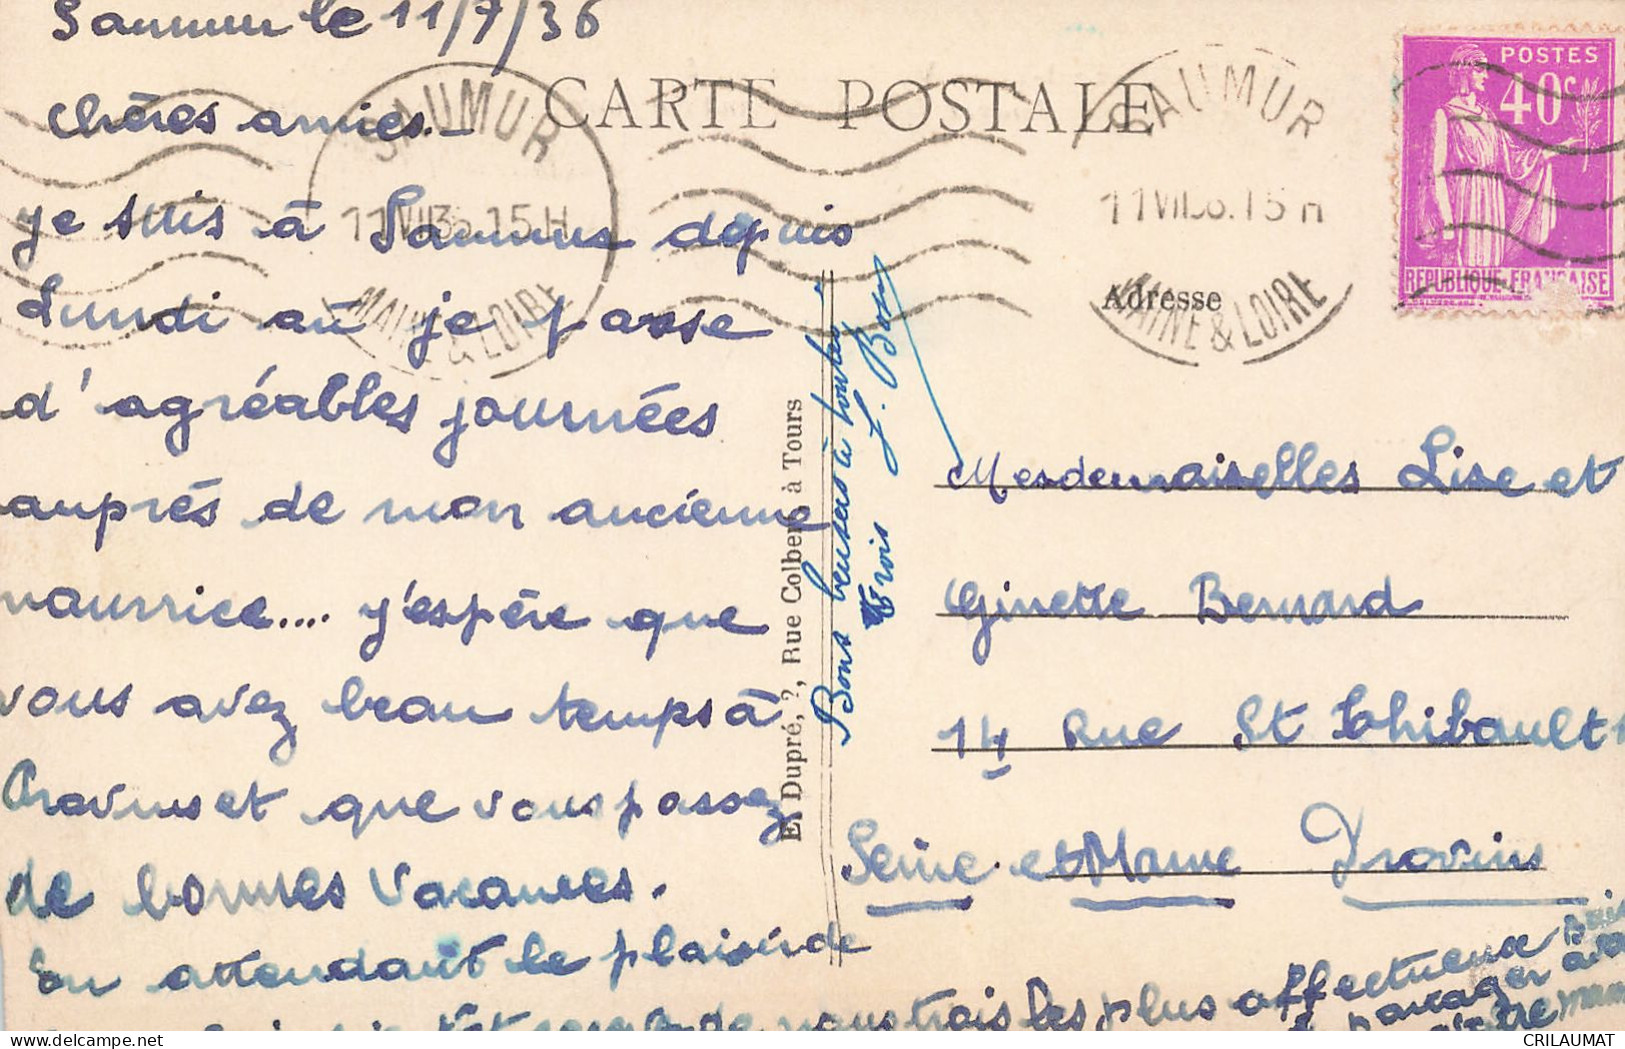 Saumur le 11/7/36
Chères amies _
je suis à Saumur depuis
Lundi où je passe
d'agréables journées
auprès de mon ancienne
nourrice.... j'espère que
vous avez beau temps à
Provins et que vous passez
de bonnes vacances.
En attendant le plaisir de
de vous trois les plus affectueux
partager avec
votre maman
Bons baisers à toutes
trois
CARTE POSTALE
SAUMUR
11 VII 36. 15 H
MAINE & LOIRE
SAUMUR
11 VII 36. 15 H
MAINE & LOIRE
POSTES
40c
REPUBLIQUE FRANÇAISE
Adresse
E. Dupré, ?, Rue Colbert, à Tours
Mesdemoiselles Lise et
Ginette Bernard
14 Rue St Thibault
Seine et Marne Provins
CRILAUMAT